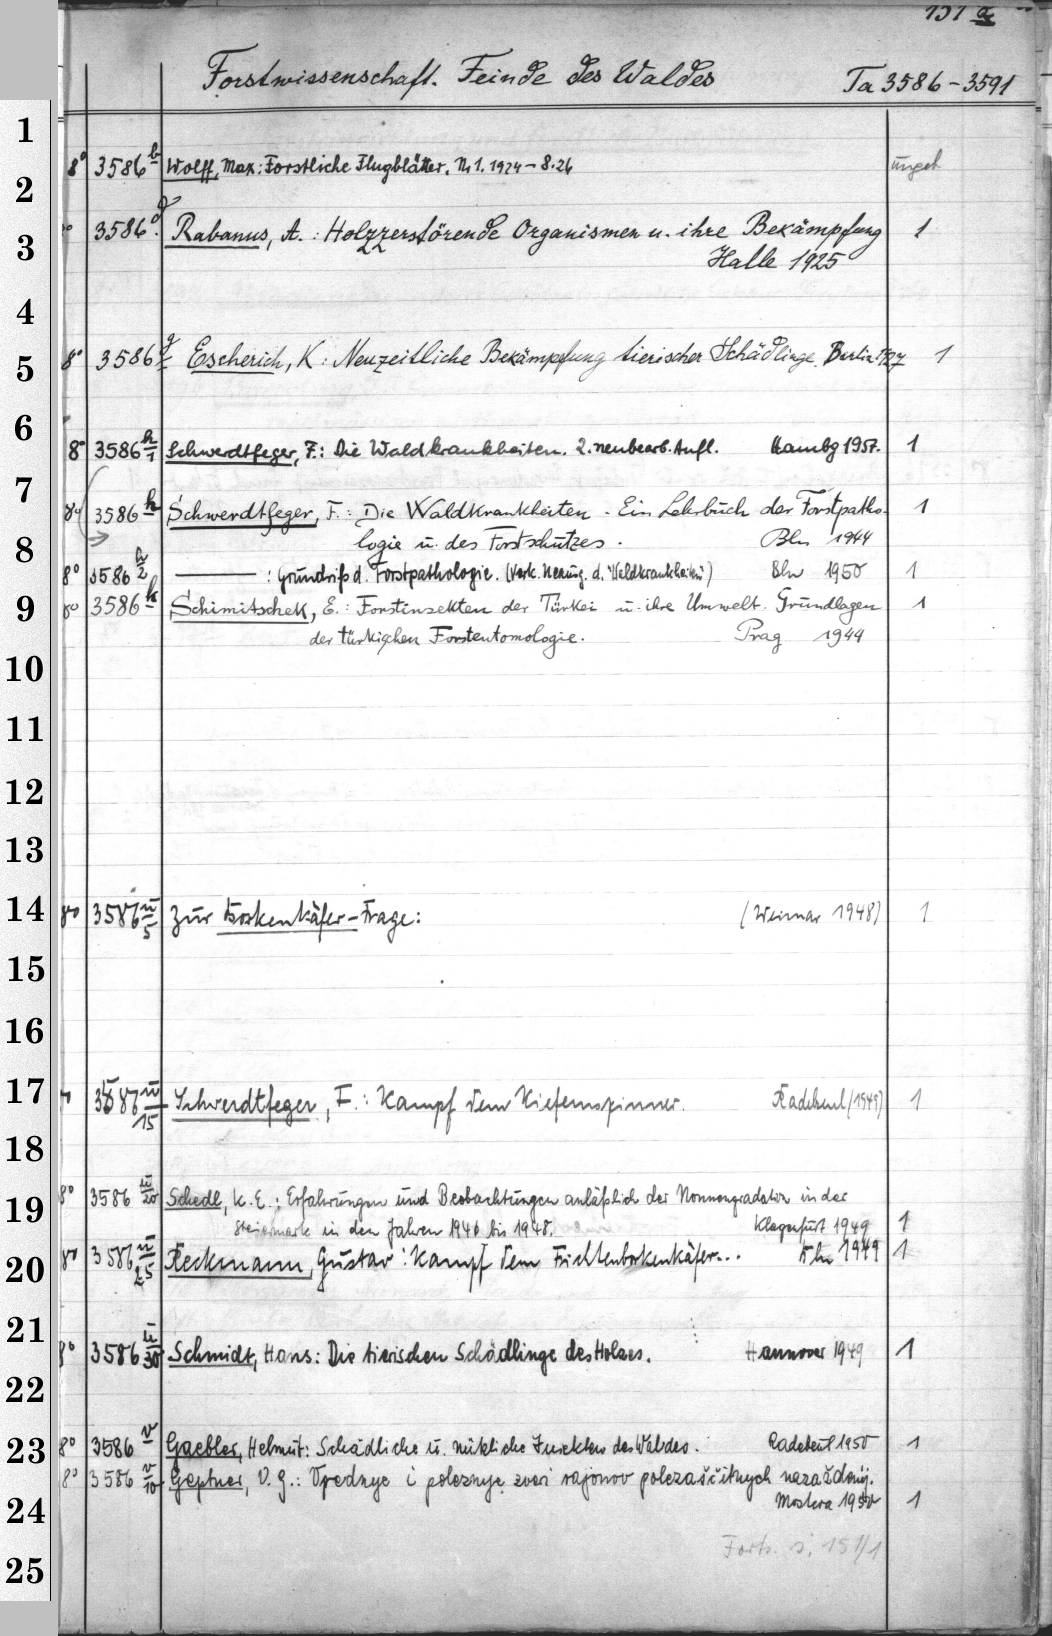 151 a
Forstwissenschaft. Feinde des Waldes Ta 3586-3591
1
2
3
4
5
6
7
8
9
10
11
12
13
14
15
16
17
18
19
20
21
22
23
24
25
8° 3586 b Wolff, Max: Forstliche Flugblätter. Nr 1. 1924 - 8.26 ungeb
3586 d Rabanus, A.: Holzzerstörende Organismen u. ihre Bekämpfung 1
Halle 1925
8° 3586 g Escherich, K: Neuzeitliche Bekämpfung tierischer Schädlinge. Berlin 1927 1
8° 3586 h/1 Schwerdtfeger, F.: Die Waldkrankheiten. 2. neubearb. Aufl. Hambg 1957. 1
8° 3586 h Schwerdtfeger, F.: Die Waldkrankheiten - Ein Lehrbuch der Forstpatho- 1
logie u. des Forstschutzes. Bln 1944
8° 3586 h/2 ——— : Grundriß d. Forstpathologie. (Verk. Neuausg. d. "Waldkrankheiten") Bln 1950 1
8° 3586 k Schimitschek, E.: Forstinsekten der Türkei u. ihre Umwelt. Grundlagen 1
der türkischen Forstentomologie. Prag 1944
8° 3586 u/5 Zur Borkenkäfer-Frage: (Weimar 1948) 1
3586 u/15 Schwerdtfeger, F.: Kampf dem Kiefernspinner. Radebeul (1949) 1
8° 3586 u/20 Schedl, K. E.: Erfahrungen und Beobachtungen anläßlich der Nonnengradation in der
Steiermark in den Jahren 1946 bis 1948. Klagenfurt 1949 1
8° 3586 u/25 Reckmann, Gustav: Kampf dem Fichtenborkenkäfer... Bln 1949 1
8° 3586 u/30 Schmidt, Hans: Die tierischen Schädlinge des Holzes. Hannover 1949 1
8° 3586 v Gaebler, Helmut: Schädliche u. nützliche Insekten des Waldes. Radebeul 1950 1
8° 3586 v/10 Geptner, V. G.: Vrednye i poleznye zveri rajonov polezaščitnych nasaždenij.
Moskva 1950 1
Forts. s. 151/1